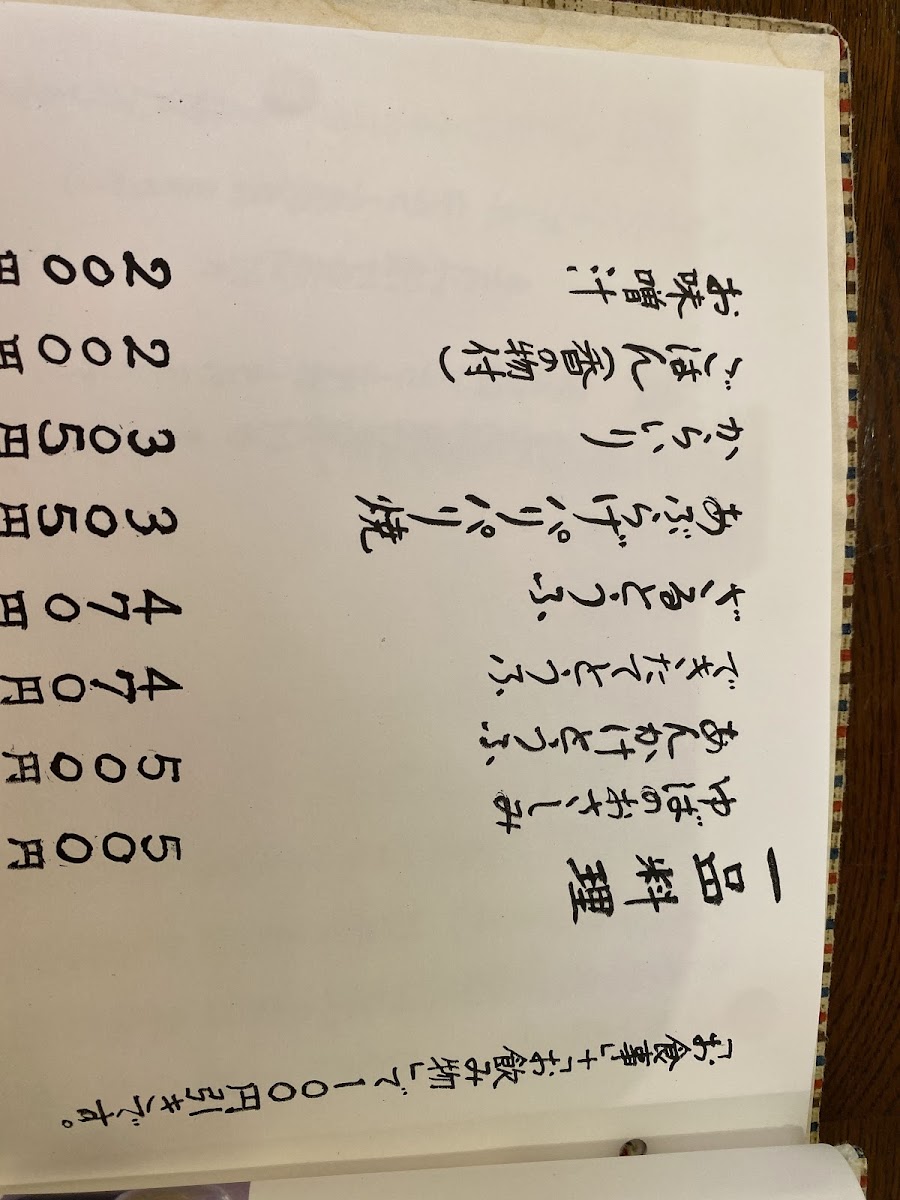 「お食事」+「お飲み物」で１００円引きです。
一品料理
ゆばのおさしみ ５００円
あんかけとうふ ５００円
できたてとうふ ４７０円
ざるとうふ ４７０円
あぶらげパリパリ焼 ３０５円
からいり ３０５円
ごはん（香の物付） ２００円
お味噌汁 ２００円